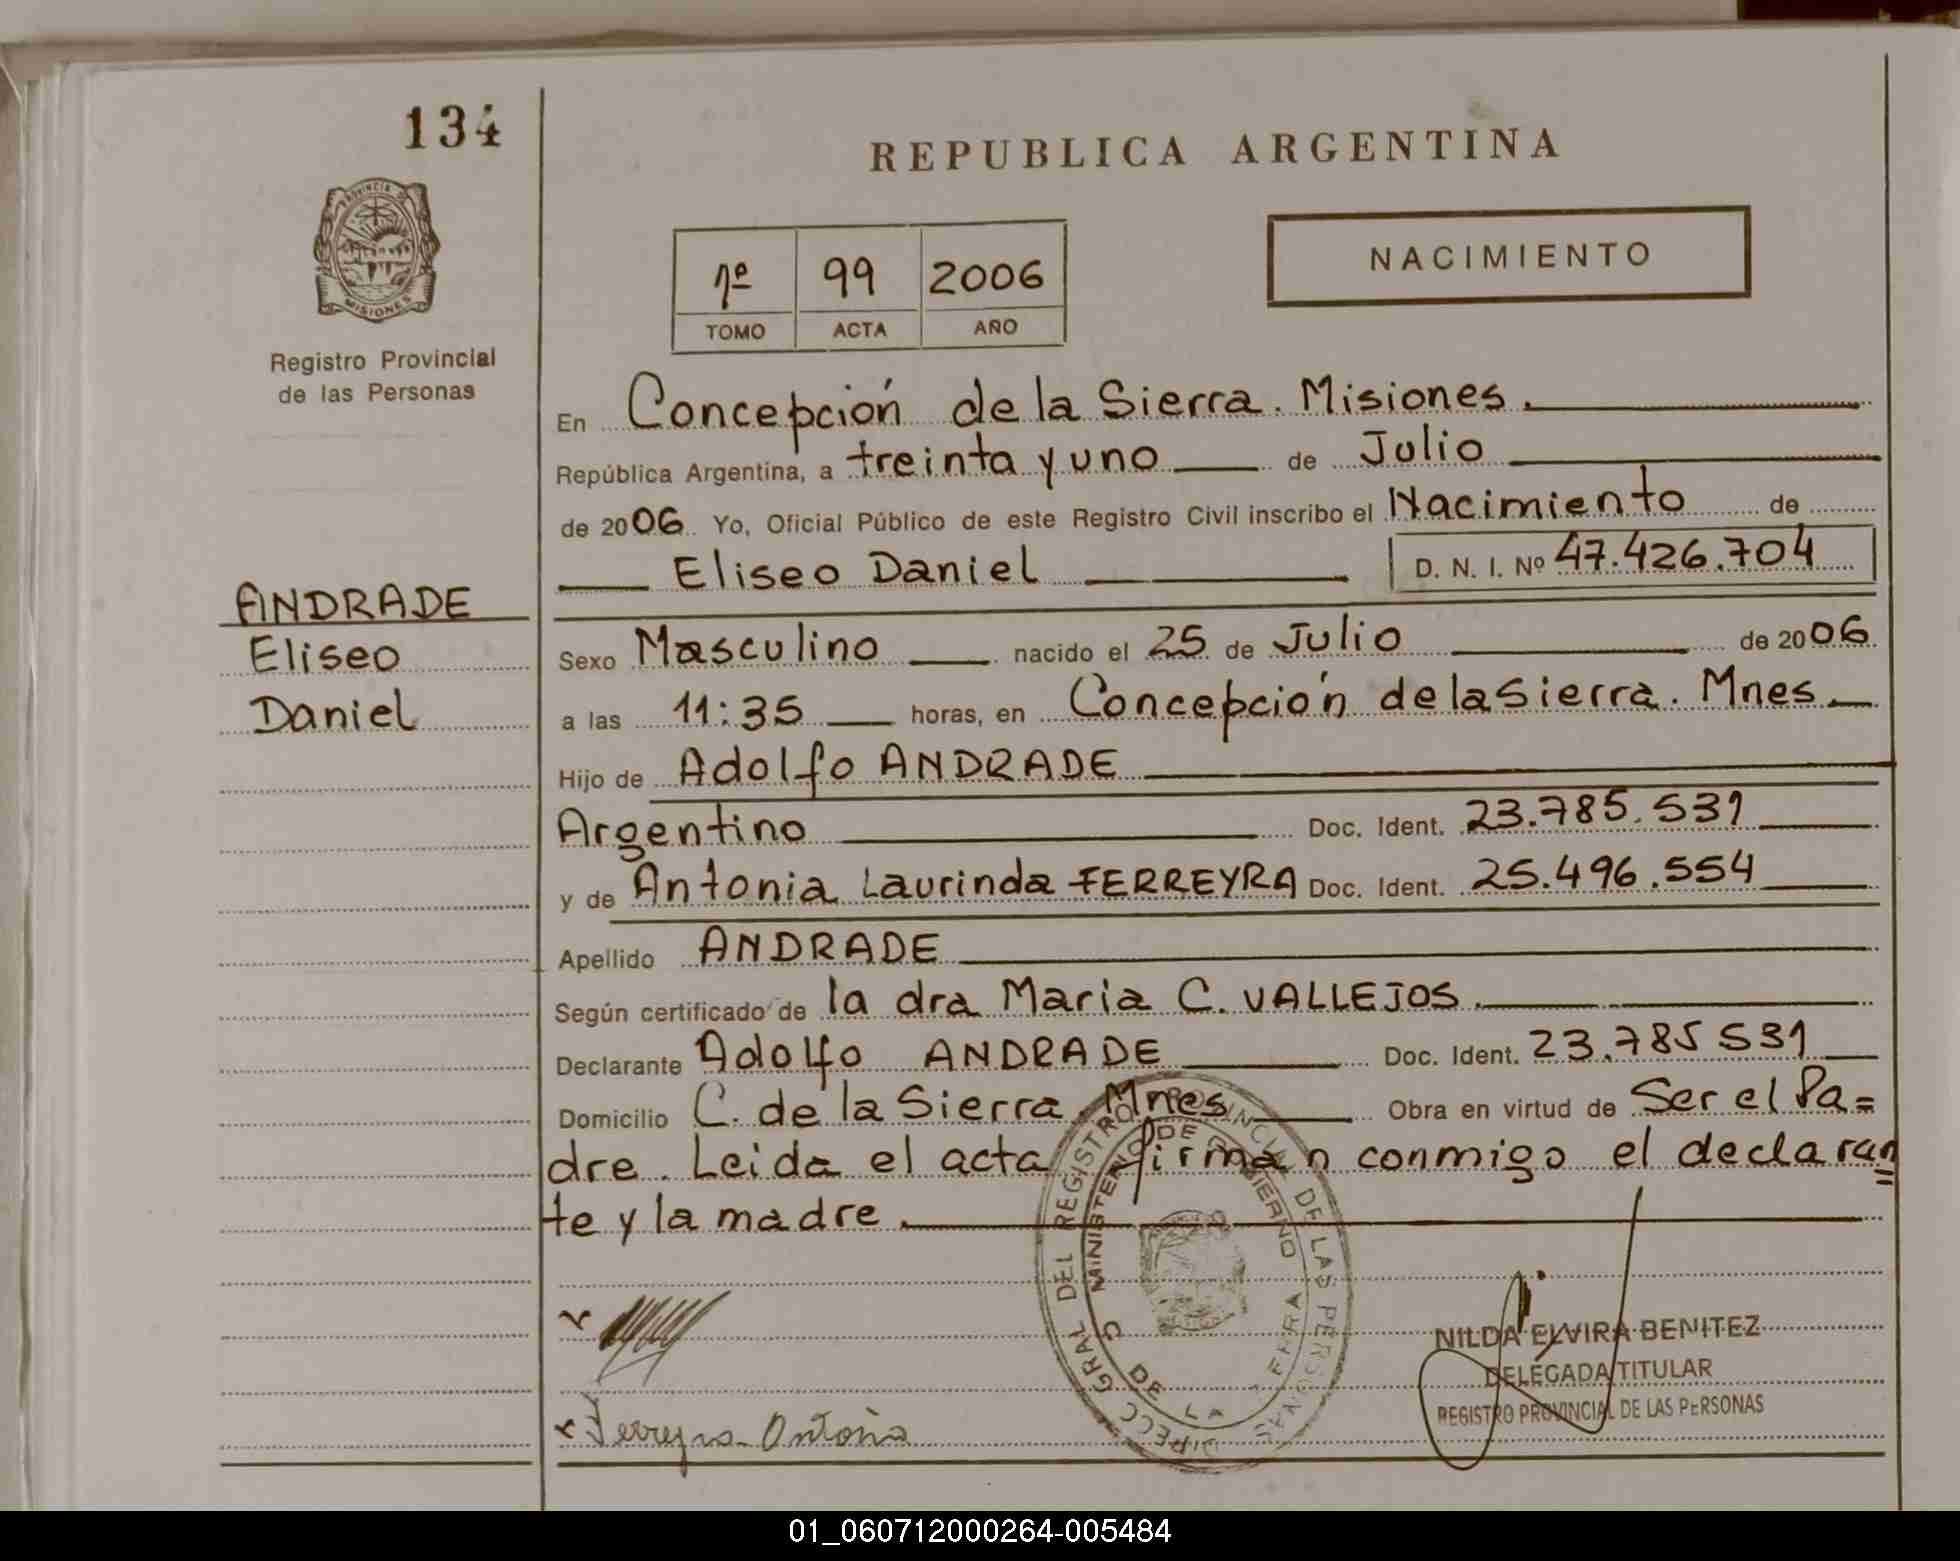 134
REPUBLICA ARGENTINA
PROVINCIA DE
MISIONES
Registro Provincial
de las Personas
NACIMIENTO
1º 99 2006
TOMO ACTA AÑO
En Concepción de la Sierra. Misiones.
República Argentina, a treinta y uno de Julio
de 2006 Yo, Oficial Público de este Registro Civil inscribo el Nacimiento de
Eliseo Daniel D. N. I. Nº 47.426.704
ANDRADE
Eliseo
Daniel
Sexo Masculino nacido el 25 de Julio de 2006
a las 11:35 horas, en Concepción de la Sierra. Mnes
Hijo de Adolfo ANDRADE
Argentino Doc. Ident. 23.785.531
y de Antonia Laurinda FERREYRA Doc. Ident. 25.496.554
Apellido ANDRADE
Según certificado de la dra Maria C. VALLEJOS.
Declarante Adolfo ANDRADE Doc. Ident. 23.785 531
Domicilio C. de la Sierra. Mnes Obra en virtud de Ser el Pa=
dre. Leida el acta firman conmigo el declaran=
te y la madre.
DIRECC GRAL DEL REGISTRO PROVINCIAL DE LAS PERSONAS
MINISTERIO DE GOBIERNO
C DE LA
Ferreyra Antonia
NILDA ELVIRA BENITEZ
DELEGADA TITULAR
REGISTRO PROVINCIAL DE LAS PERSONAS
01_060712000264-005484